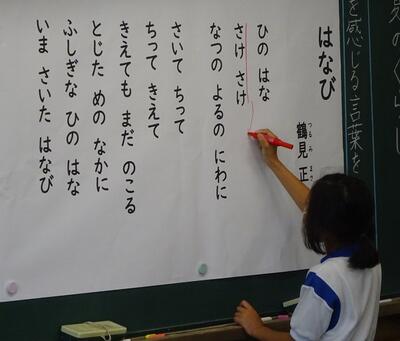 を感じる言葉を
はなび
鶴見 正
つるみ まさ
ひの はな
さけ さけ
なつの よるの にわに
さいて ちって
ちって きえて
きえても まだ のこる
とじた めの なかに
ふしぎな ひの はな
いま さいた はなび